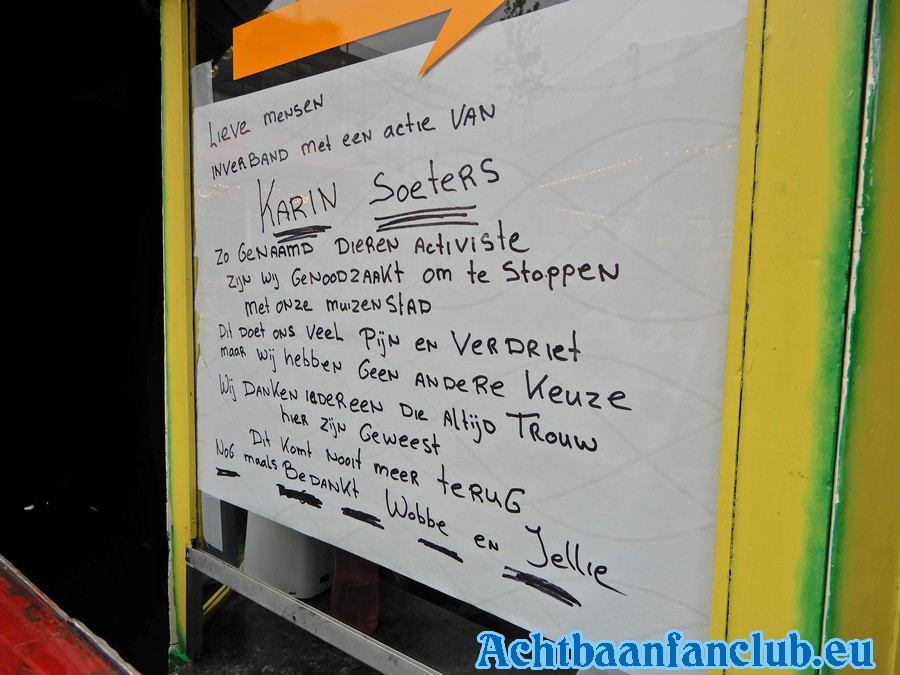 Lieve mensen
inverband met een actie van
Karin Soeters
Zo genaamd dieren activiste
zijn wij genoodzaakt om te stoppen
met onze muizenstad
Dit doet ons veel pijn en verdriet
maar wij hebben geen andere keuze
Wij danken iedereen die altijd trouw
hier zijn geweest
Dit komt nooit meer terug
Nog maals bedankt Wobbe en Jellie
Achtbaanfanclub.eu